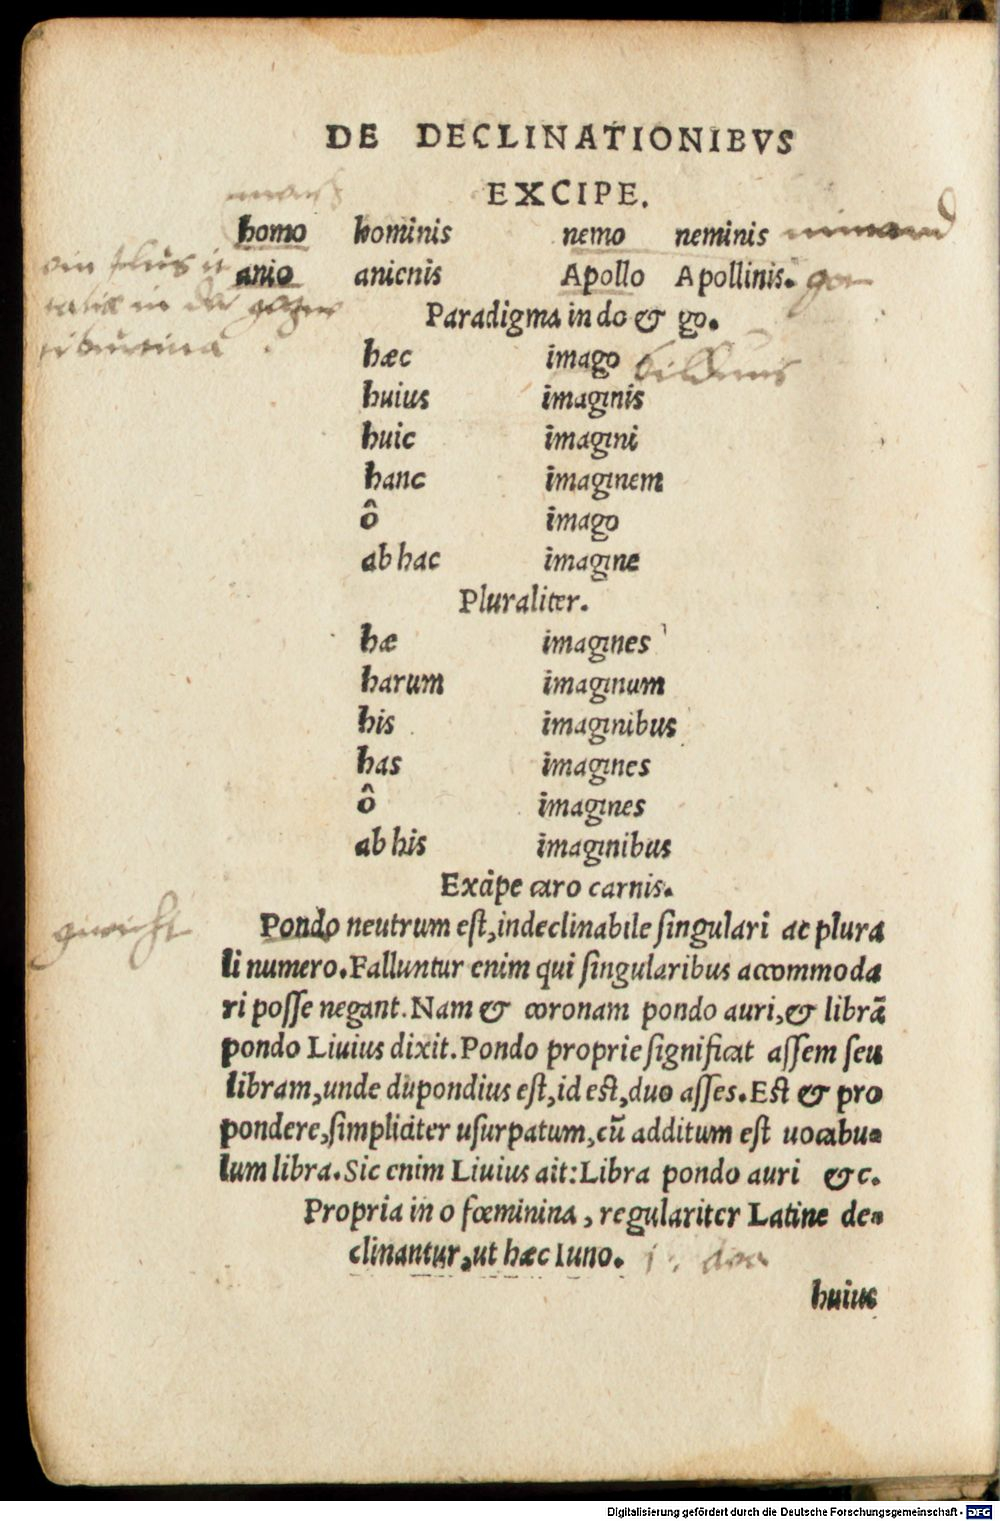 DE DECLINATIONIBVS
EXCIPE.
homo hominis nemo neminis
anio anienis Apollo Apollinis.
Paradigma in do & go.
hæc imago bildnus
huius imaginis
huic imagini
hanc imaginem
ô imago
ab hac imagine
Pluraliter.
hæ imagines
harum imaginum
his imaginibus
has imagines
ô imagines
ab his imaginibus
Excipe caro carnis.
gewicht
Pondo neutrum eſt, indeclinabile ſingulari ac plura
li numero. Falluntur enim qui ſingularibus accommoda
ri poſſe negant. Nam & coronam pondo auri, & librã
pondo Liuius dixit. Pondo proprie ſignificat aſſem ſeu
libram, unde dupondius eſt, id eſt, duo aſſes. Eſt & pro
pondere, ſimpliciter uſurpatum, cũ additum eſt uocabu-
lum libra. Sic enim Liuius ait: Libra pondo auri &c.
Propria in o fœminina, regulariter Latine de-
clinantur, ut hæc Iuno.
huius
Digitalisierung gefördert durch die Deutsche Forschungsgemeinschaft - DFG